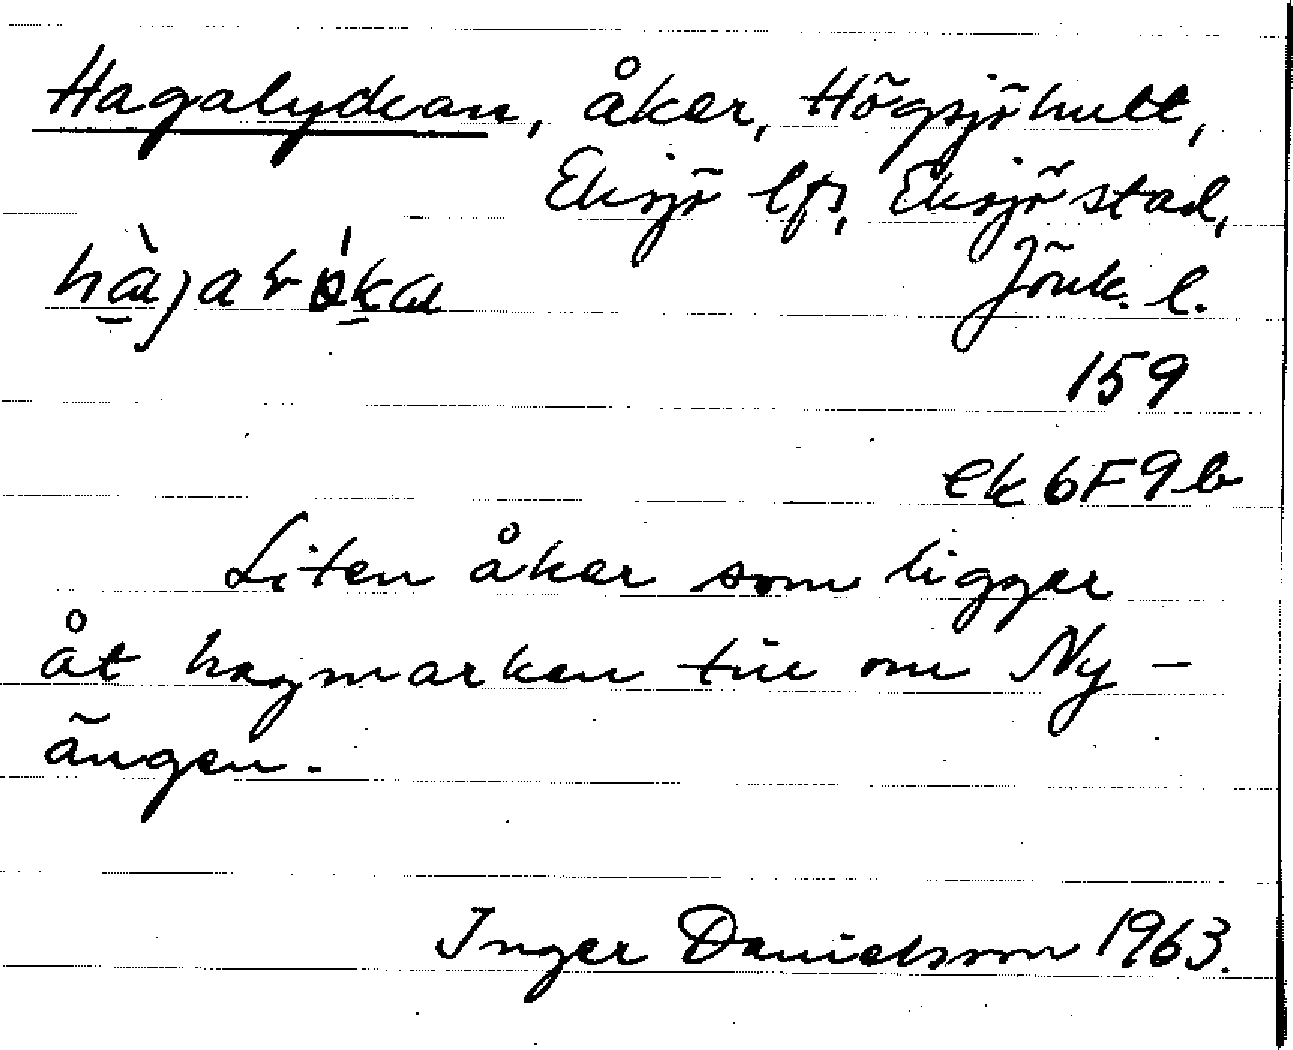 Hagalyckan, åker, Högsjöhult,
Eksjö lfs, Eksjö stad,
Jönk. l.
159
ek 6F9b
Liten åker som ligger
åt hagmarken till om Ny-
ängen.
Inger Danielsson 1963.